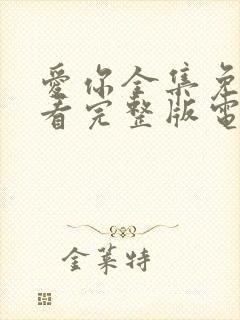 愛你全集免
看完整版電
金萊特